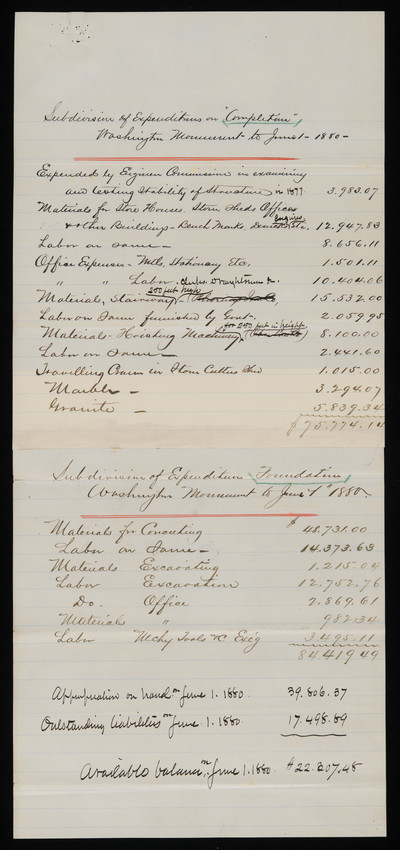 Subdivision of Expenditures on "Completion"
Washington Monument to June 1 - 1880 -
Expended by Engineer Commission in examining
and testing Stability of Structure in 1877. 3.983.07
Materials for Store Houses, Stone Sheds Offices
& other Buildings - Bench Marks, Engines &c. 12.947.83
Labor on Same - 8.656.11
Office Expenses - Mtls, Stationary Etc, 1.501.11
" " Labor, Clerks, Draughtsmen &c. 10.404.06
250 feet high
Materials, Stairway, 15.532.00
Labor on Same furnished by Govt. 2.059.95
for 250 feet in height
Materials - Hoisting Machinery, 8.100.00
Labor on Same - 2.441.60
Travelling Crane in Stone Cutters Shed 1.015.00
Marble - 3.294.07
Granite - 5.839.34
$75.774.14
Subdivision of Expenditures "Foundation"
Washington Monument to June 1st 1880.
Materials for Concreting $ 48.731.00
Labor on Same - 14.373.63
Materials Excavating 1.215.04
Labor Excavation 12.752.76
Do. Office 2.869.61
Materials " 982.34
Labor Mchy Tools &c Exc'g 3.495.11
84.419.49
Appropriation on hand on June 1. 1880. 39.806.37
Outstanding liabilities on June 1. 1880. 17.498.89
Available balance, on June 1. 1880. $22.307.48